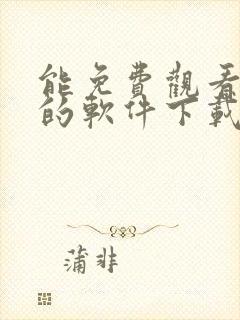 能免費觀看
的軟件下載
蒲非